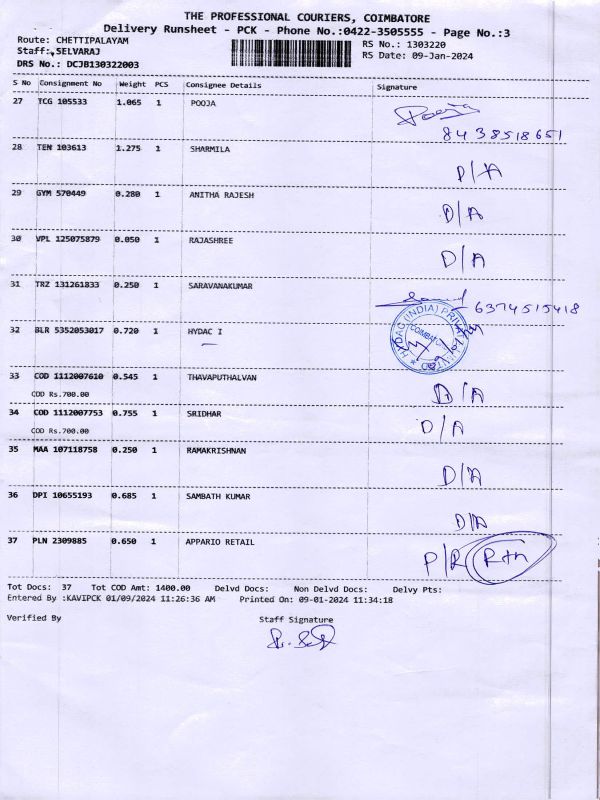 THE PROFESSIONAL COURIERS, COIMBATORE
Delivery Runsheet - PCK - Phone No.:0422-3505555 - Page No.:3
Route: CHETTIPALAYAM
RS No.: 1303220
Staff: SELVARAJ
RS Date: 09-Jan-2024
DRS No.: DCJB130322003
S No Consignment No Weight PCS Consignee Details Signature
27 TCG 105533 1.065 1 POOJA Pooja
8438518651
28 TEN 103613 1.275 1 SHARMILA
D/A
29 GYM 570449 0.280 1 ANITHA RAJESH
D/A
30 VPL 125075879 0.050 1 RAJASHREE
D/A
31 TRZ 131261833 0.250 1 SARAVANAKUMAR
6374515418
32 BLR 5352053017 0.720 1 HYDAC I
HYDAC (INDIA) PRIVATE LIMITED
COIMBATORE
33 COD 1112007610 0.545 1 THAVAPUTHALVAN
COD Rs.700.00
D/A
34 COD 1112007753 0.755 1 SRIDHAR
COD Rs.700.00
D/A
35 MAA 107118758 0.250 1 RAMAKRISHNAN
D/A
36 DPI 10655193 0.685 1 SAMBATH KUMAR
D/A
37 PLN 2309885 0.650 1 APPARIO RETAIL
P/R Rtn
Tot Docs: 37 Tot COD Amt: 1400.00 Delvd Docs: Non Delvd Docs: Delvy Pts:
Entered By :KAVIPCK 01/09/2024 11:26:36 AM Printed On: 09-01-2024 11:34:18
Verified By Staff Signature